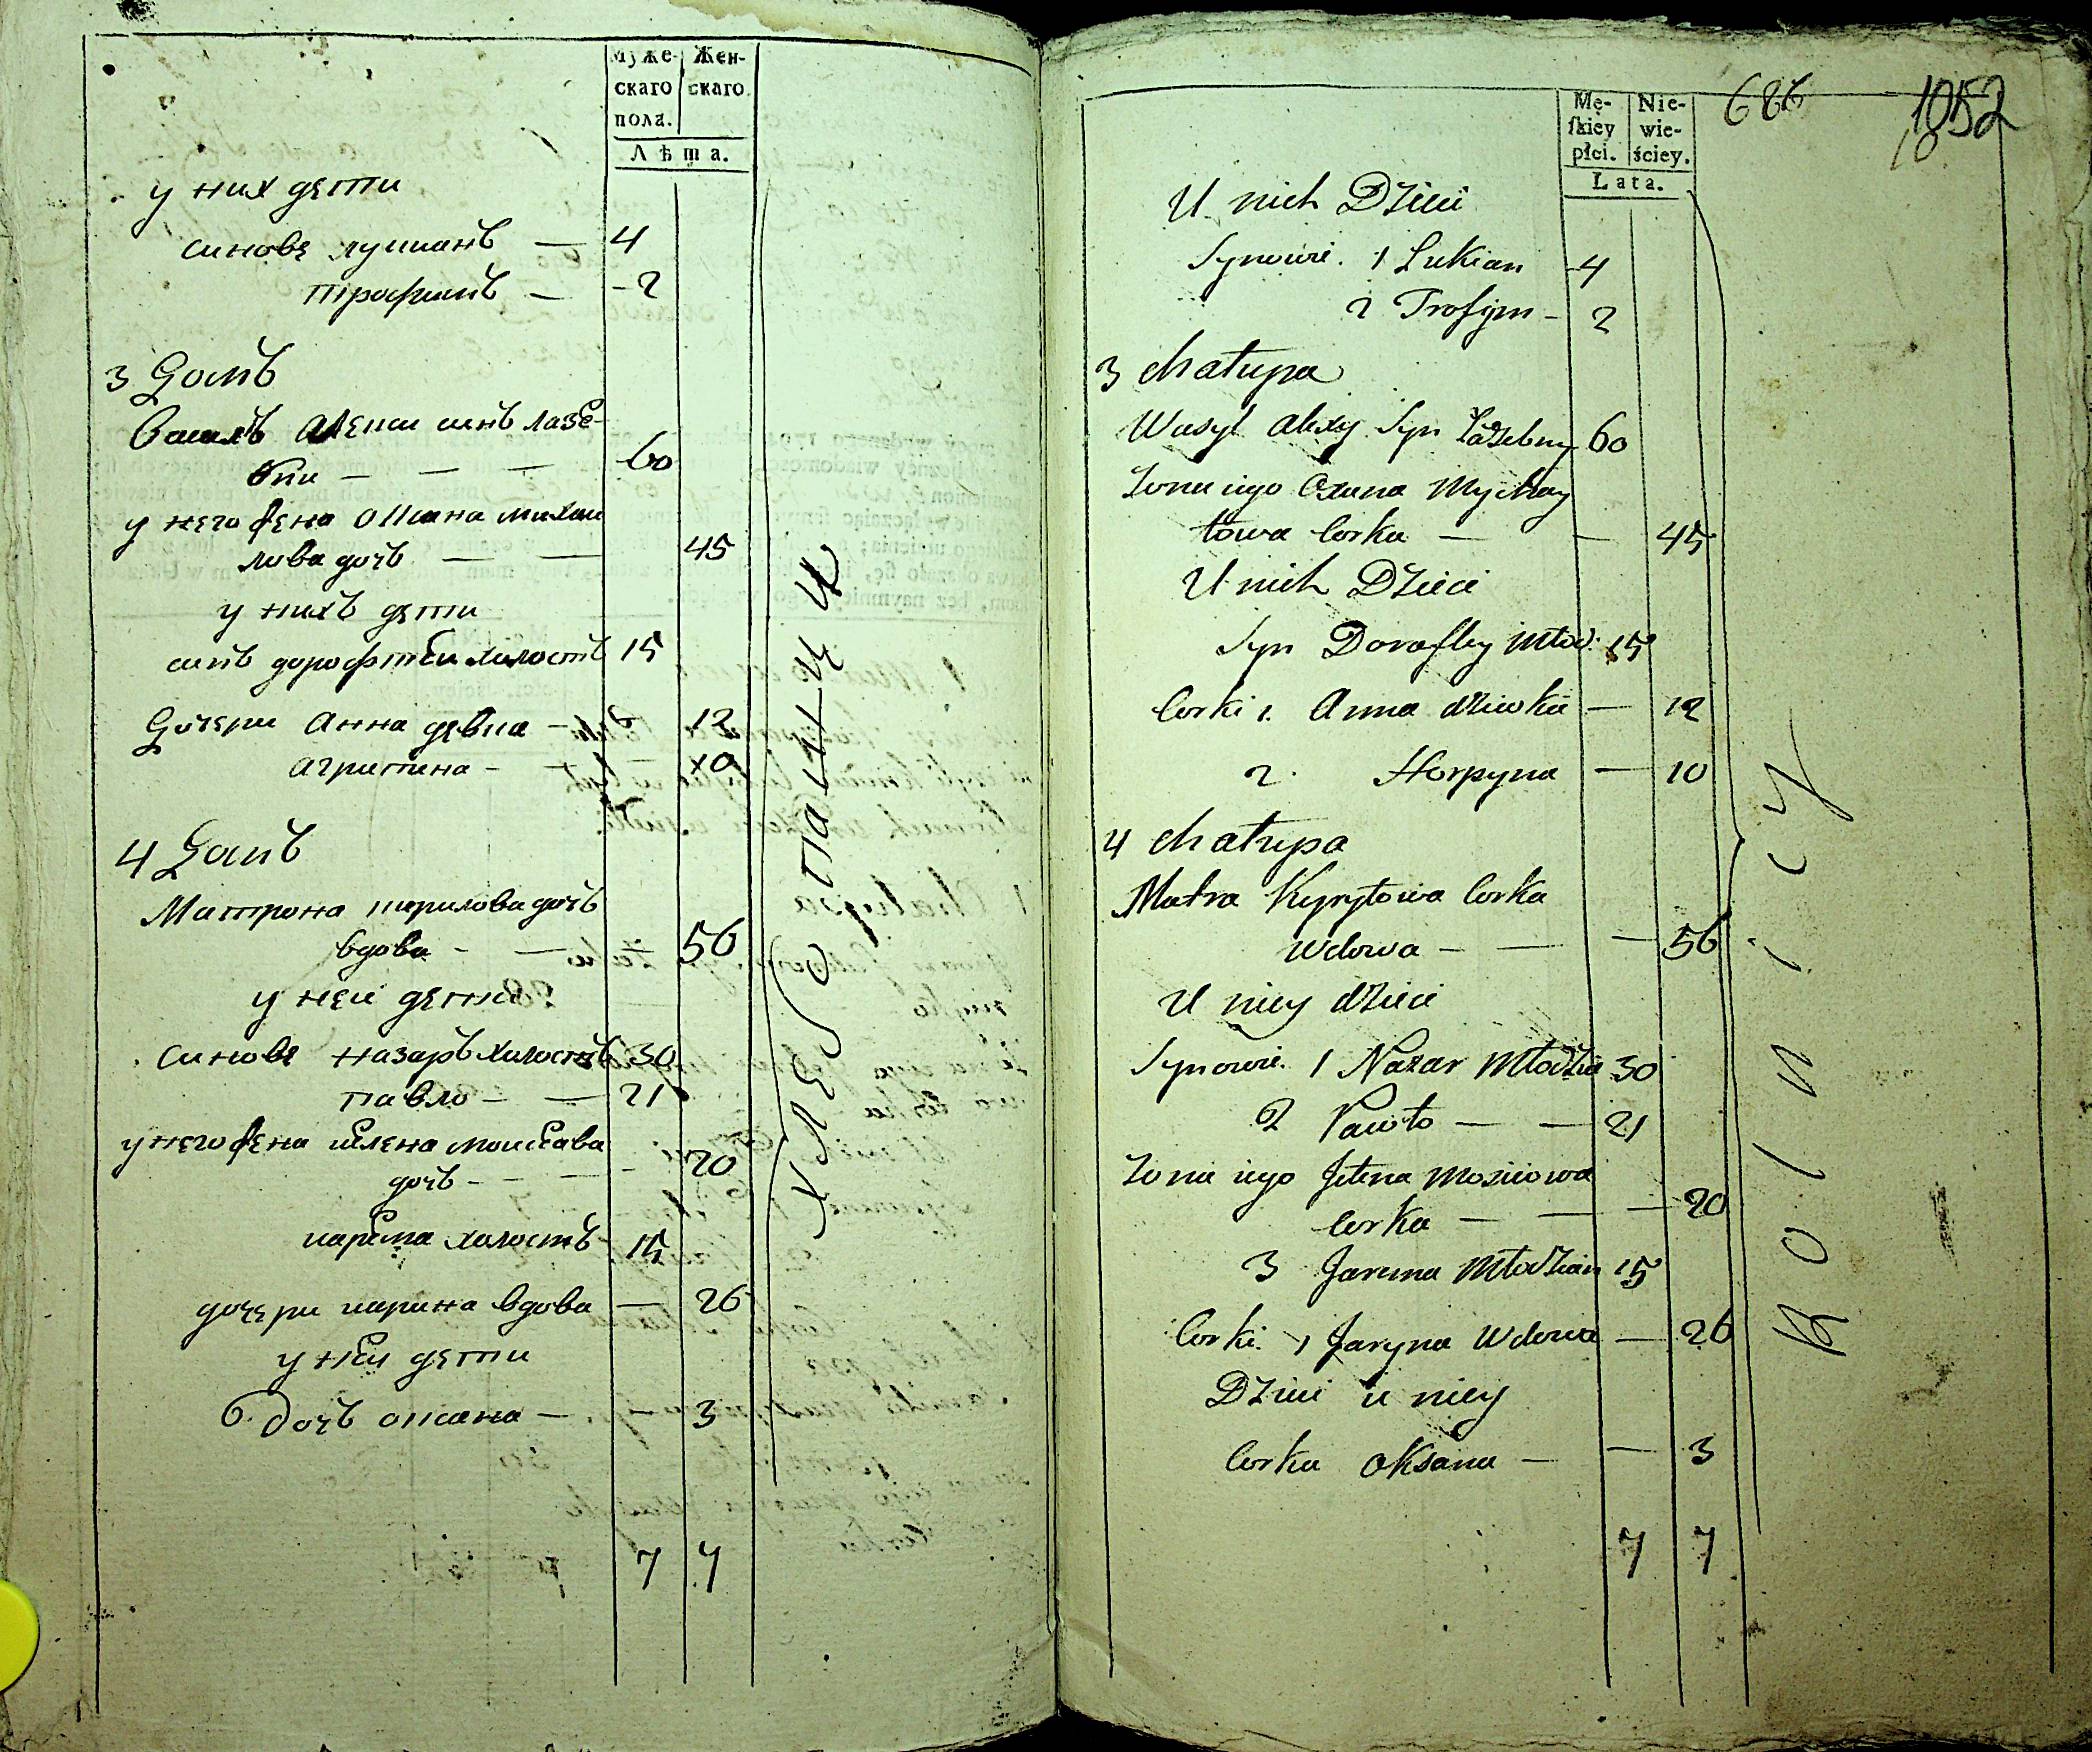 Муже- Жен-
скаго скаго
пола.
Лѣта.
у них дети
синове лукианъ — 4
трофимъ — - 2
3 Домъ
Василъ алекси синъ лазѣ-
бни — — — 60
у него жена оксана михаи
лова дочъ — — 45
у нихъ дети
синъ дорофтѣи холостъ 15
Дочери Анна девка — 12
агрипина - — 10
4 Домъ
Матрона кирилова дочъ
вдова - — — 56
у неи дети
синове назаръ холостъ 30
павло — — 21
у него жена ѣлена моисѣава
дочъ - - - - 20
иарѣма холостъ 15
дочери иарина вдова — 26
у нѣи дети
дочъ оксана — — 3
7 7
хлѣбопашци
686 1052
Mę- Nie-
skiey wie-
płci. ściey.
Lata.
U nich Dzieci
Synowie. 1 Lukian 4
2 Trofym - 2
3 Chatupa
Wasyl Alexy Syn Łazebny 60
Zona iego Oxana Mychay
łowa Corka — — 45
U nich Dzieci
Syn Doroftey Młod: 15
Corki 1. Anna dziewka — 12
2. Horpyna — 10
4 Chatupa
Matra Kyryłowa Corka
Wdowa — — — 56
U niey dzieci
Synowie. 1 Nazar Młodzia 30
2 Pawło — — 21
Zona iego Jelena Mosiiowa
Corka — — — 20
3 Jarema Młodzian 15
Corki. 1 Jaryna Wdowa — 26
Dzieci u niey
Corka Oksana — — 3
7 7
Rolnicy